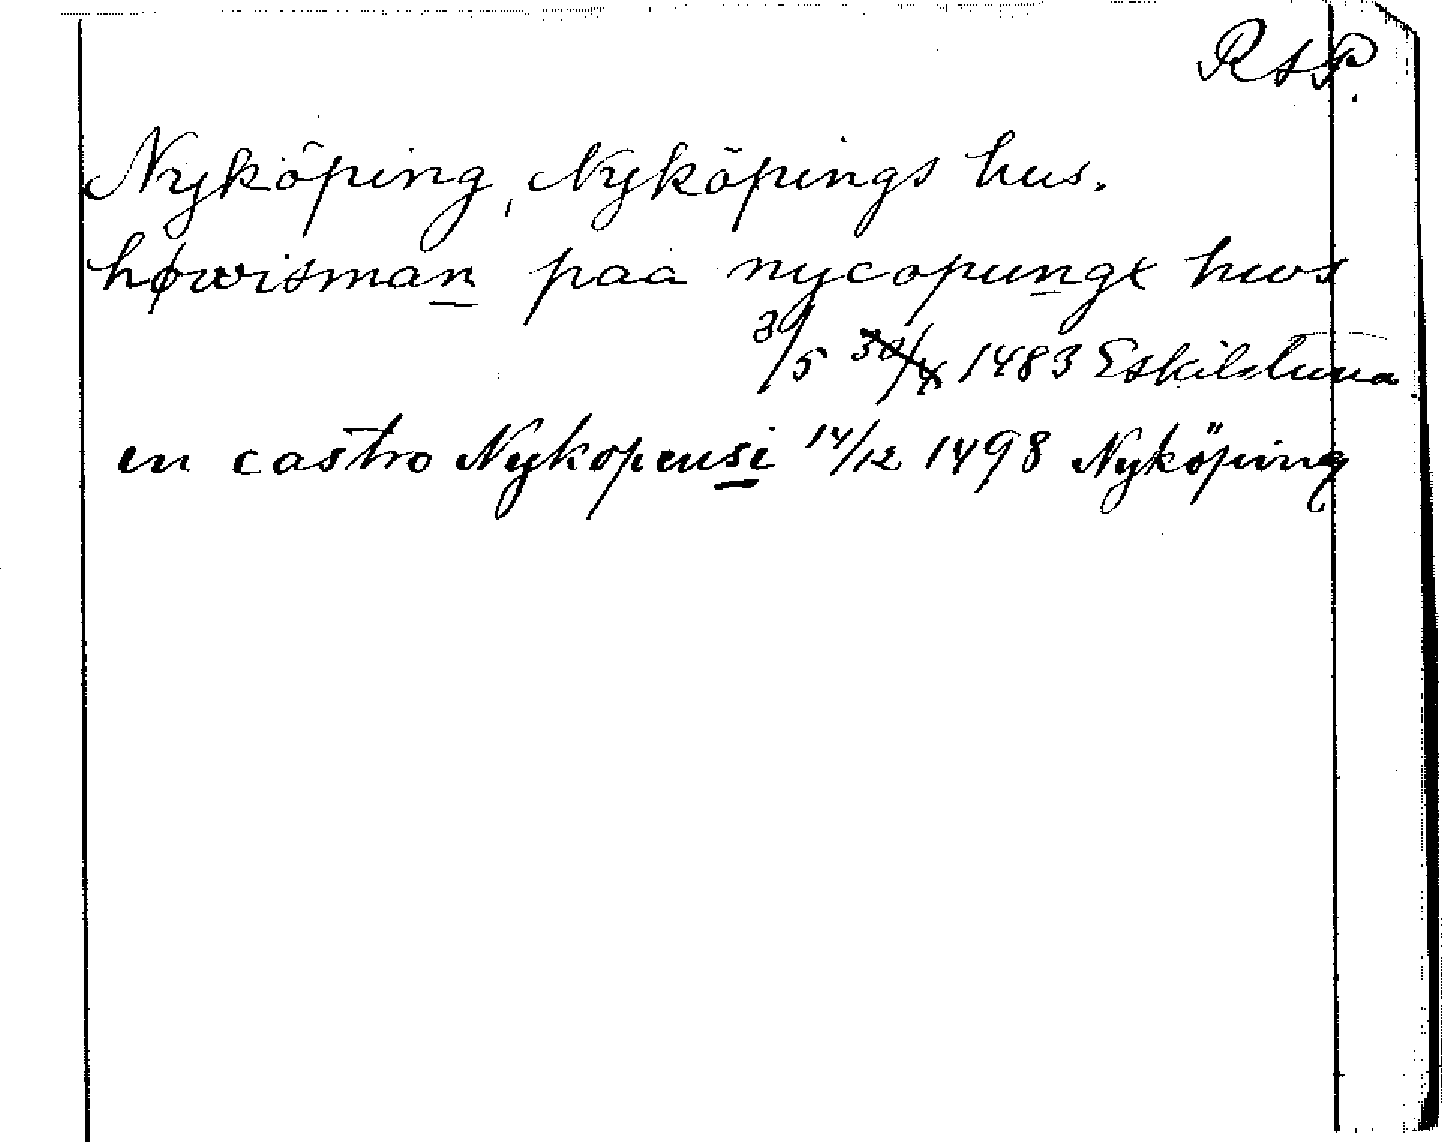 RAP.
Nyköping, Nyköpings hus.
høwisman paa nycopungx hws
3/5 30/4 1483 Eskilstuna
in castro Nykopensi 14/12 1498 Nyköping